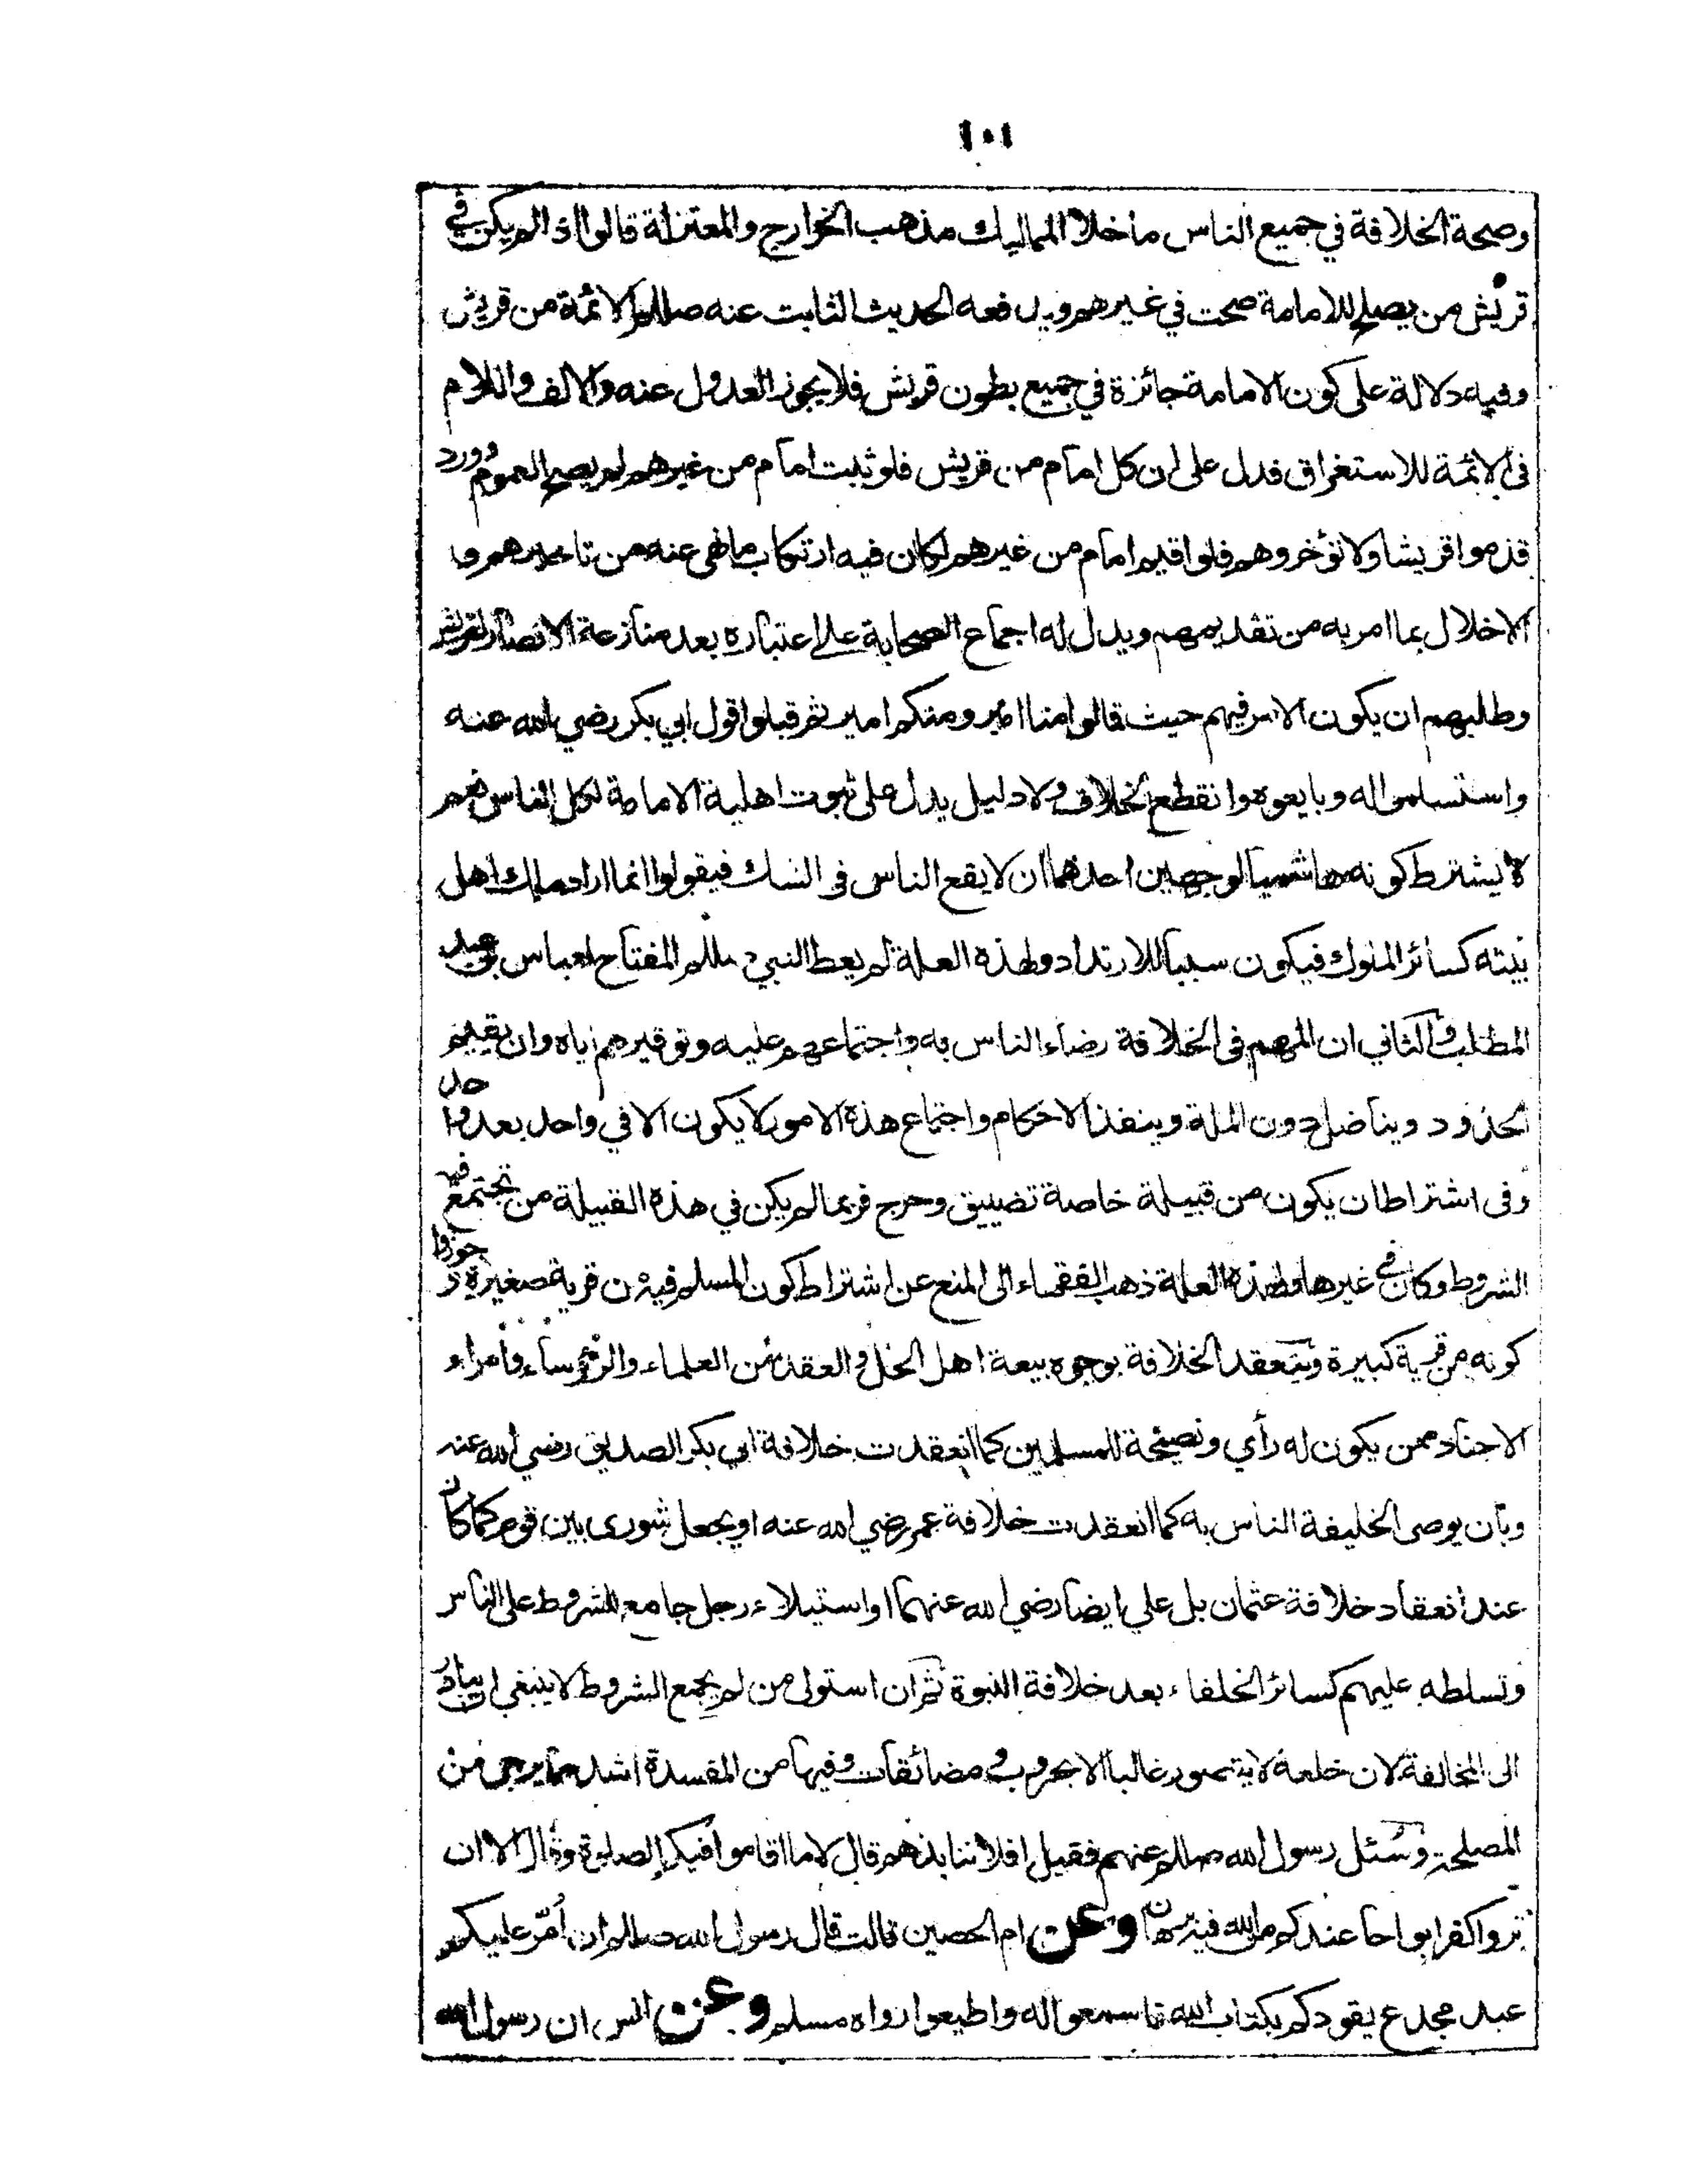 ١٠١
وصحة الخلافة في جميع الناس ماخلا المماليك مذهب الخوارج والمعتزلة قالوا اذا لم يكن في
قريش من يصلح للامامة صحت في غيرهم ويدفعه الحديث الثابت عنه صللم الائمة من قريش
وفيه دلالة على كون الامامة جائزة في جميع بطون قريش فلا يجوز العدول عنه والالف واللام
فى الائمة للاستغراق فدل على ان كل امام من قريش فلو ثبت امام من غيرهم لم يصح العموم وورد
قدموا قريشا ولا تؤخروهم فلو اقيم امام من غيرهم لكان فيه ارتكاب ما نهى عنه من تاخيرهم و
الاخلال بما امر به من تقديمهم ويدل له اجماع الصحابة على اعتباره بعد منازعة الانصار لقريش
وطلبهم ان يكون الامر فيهم حيث قالوا منا امير ومنكم امير ثم قبلوا قول ابي بكر رضي الله عنه
واستسلموا له وبايعوه وانقطع الخلاف ولا دليل يدل على ثبوت اهلية الامامة لكل الناس نعم
لا يشترط كونه هاشميا لوجهين احدهما ان لا يقع الناس فى الشك فيقولوا انما اراد ملك اهل
بيته كسائر الملوك فيكون سببا للارتداد ولهذه العلة لم يعط النبي صللم المفتاح لعباس بن عبد
المطلب والثاني ان المهم فى الخلافة رضاء الناس به واجتماعهم عليه وتوقيرهم اياه وان يقيم
الحدود ويناضل دون الملة وينفذ الاحكام واجتماع هذه الامور لا يكون الا في واحد بعد واحد
وفى اشتراط ان يكون من قبيلة خاصة تضييق وحرج فربما لم يكن في هذه القبيلة من تجتمع فيه
الشروط وكان في غيرها ولهذه العلة ذهب الفقهاء الى المنع عن اشتراط كون المسلم فيه من قرية صغيرة وجوزوا
كونه من قرية كبيرة وتنعقد الخلافة بوجوه بيعة اهل الحل والعقد من العلماء والرؤساء وامراء
الاجناد ممن يكون له رأي ونصيحة للمسلمين كما انعقدت خلافة ابي بكر الصديق رضي الله عنه
وبان يوصى الخليفة الناس به كما انعقدت خلافة عمر رضي الله عنه او يجعل شورى بين قوم كما كان
عند انعقاد خلافة عثمان بل علي ايضا رضي الله عنهما او استيلاء رجل جامع للشروط على الناس
وتسلطه عليهم كسائر الخلفاء بعد خلافة النبوة ثم ان استولى من لم يجمع الشروط لا ينبغي ان يبادر
الى المخالفة لان خلعه لا يتصور غالبا الا بحروب ومضائقات وفيها من المفسدة اشد مما يرجى من
المصلحة وسئل رسول الله صللم عنهم فقيل افلا ننابذهم قال لا ما اقاموا فيكم الصلوة وقال الا ان
تروا كفرا بواحا عندكم من الله فيه برهان وعن ام الحصين قالت قال رسول الله صللم ان أمّر عليكم
عبد مجدع يقودكم بكتاب الله فاسمعوا له واطيعوا رواه مسلم وعن انس ان رسول الله